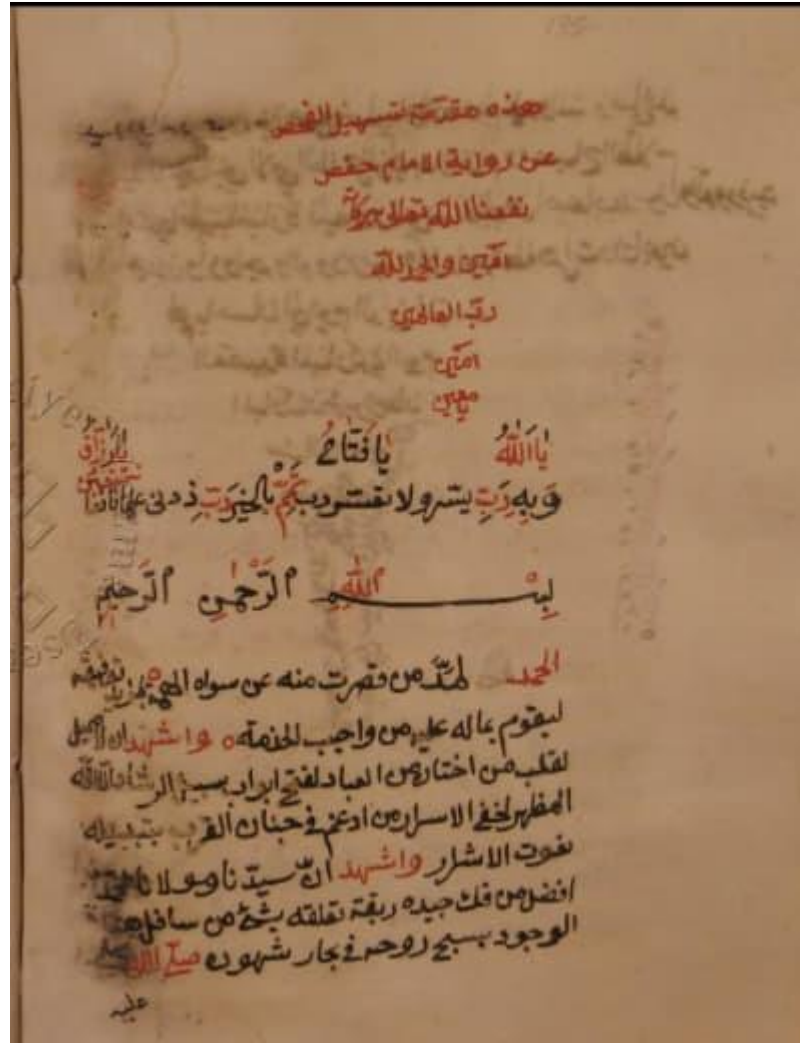 هذه مقدمة لتسهيل الفحص
عن رواية الامام حفص
نفعنا الله تعالى ببركاته
امين والحمد لله
رب العالمين
امين
يا معين
يا الله يا فتاح يا رزاق
وبه رب يسر ولا تعسر رب تمم بالخير رب زدني علما نافعا
بسم الله الرحمن الرحيم
الحمد لمن قصرت منه عن سواه الهمم
ليقوم بماله عليه من واجب الخدمة واشهد ان
لقلب من اختاره من العباد لفتح
المظهر لخفي الاسرار من ادغم في جنان القرب
نفوت الاشرار واشهد ان سيدنا ومولانا محمد
افضل من فك جيده ربقة تعلقه بشئ من سافل
الوجود بسبح روحه في بحار شهوده صلى الله
عليه